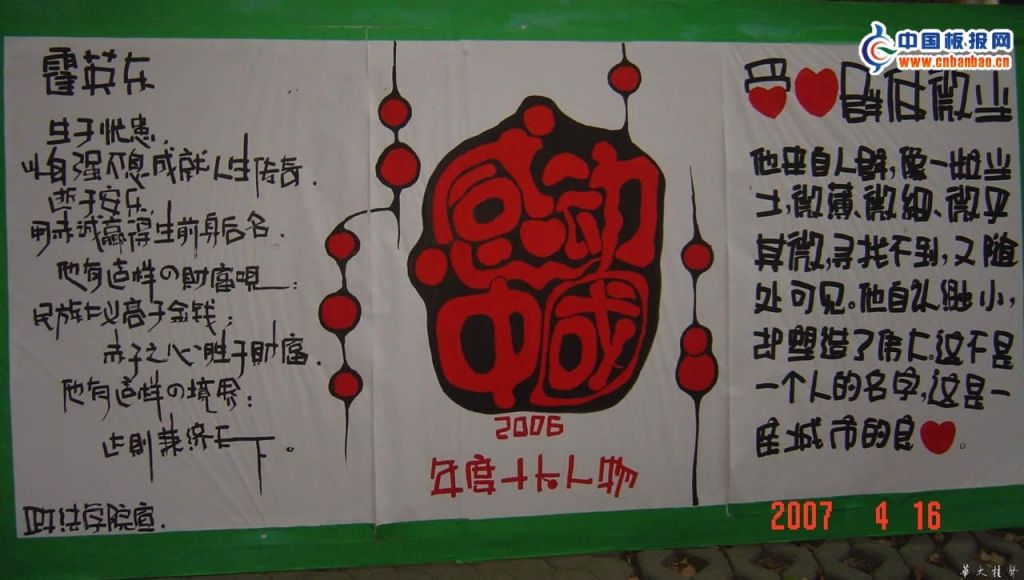 霍英东
生于忧患.
以自强不息成就人生传奇.
逝于安乐.
用赤诚赢得生前身后名.
他有这样の财富呗:
民族仁义高于金钱;
赤子之心胜于财富.
他有这样の境界:
达则兼济天下。
政法学院宣.
感动
中國
2006
年度十大人物
爱❤群体微尘
他来自人群,像一粒尘
土,微薄、微细、微乎
其微,寻找不到,又随
处可见。他自认渺小,
却塑造了伟大。这不是
一个人的名字,这是一
座城市的良❤。
中国板报网
www.cnbanbao.cn
2007 4 16